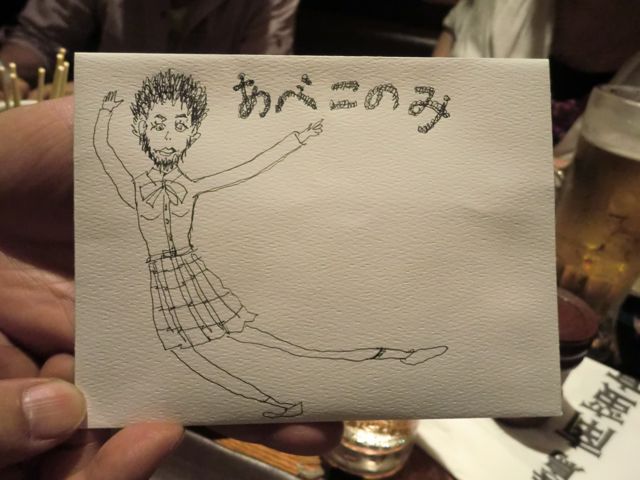 あべこのみ